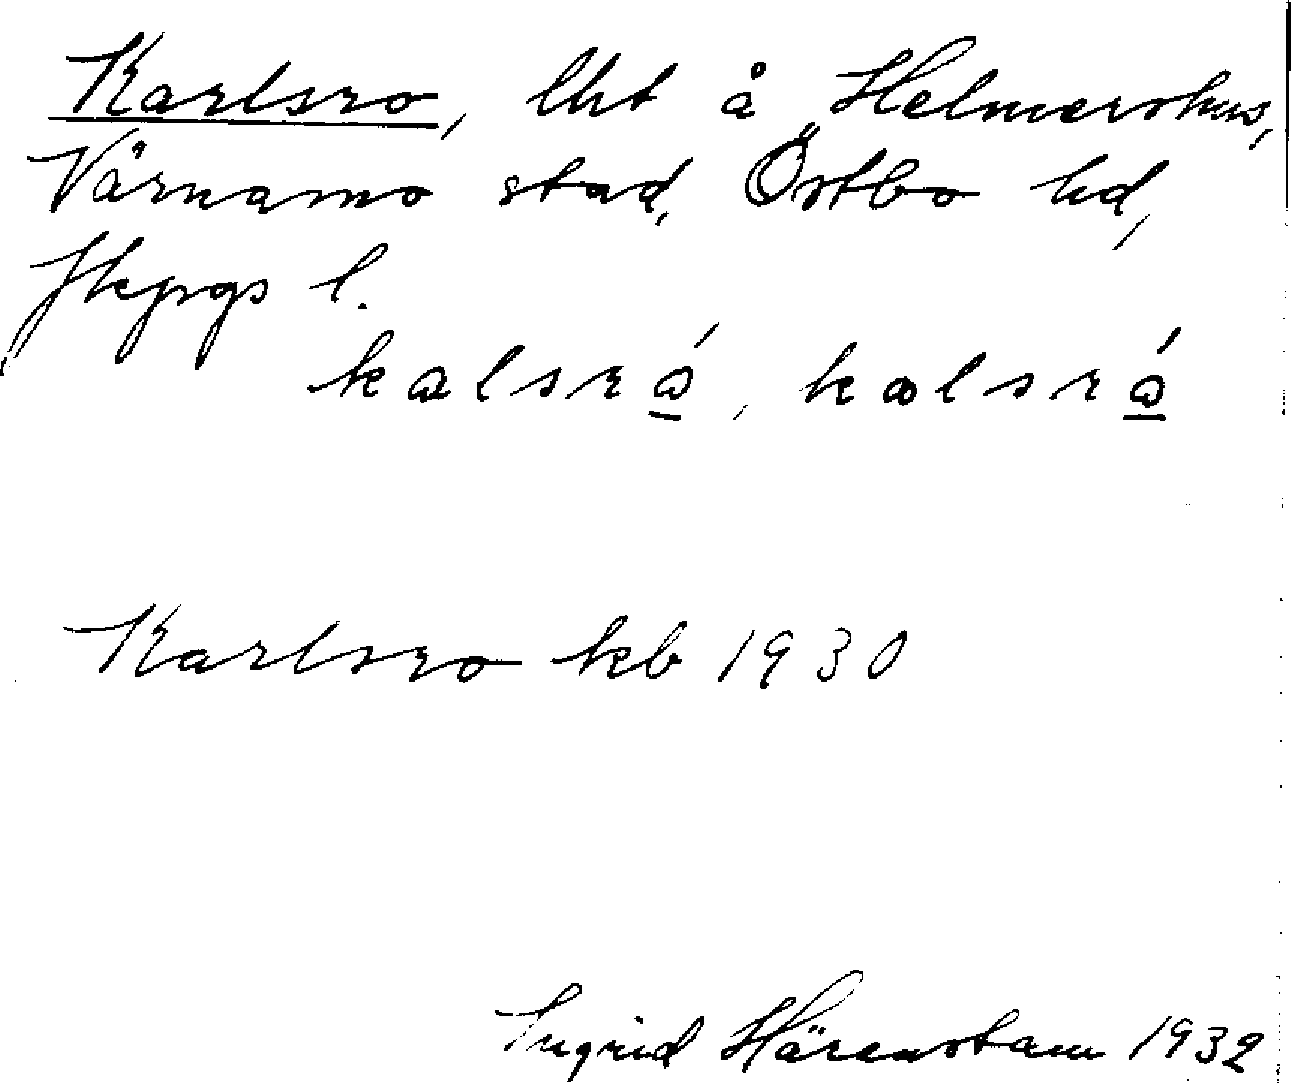 Karlsro, lht å Helmershus,
Värnamo stad, Östbo hd,
Jkpgs l.
kalsró̲, kalsró̲
Karlsro kb 1930
Ingrid Härenstam 1932